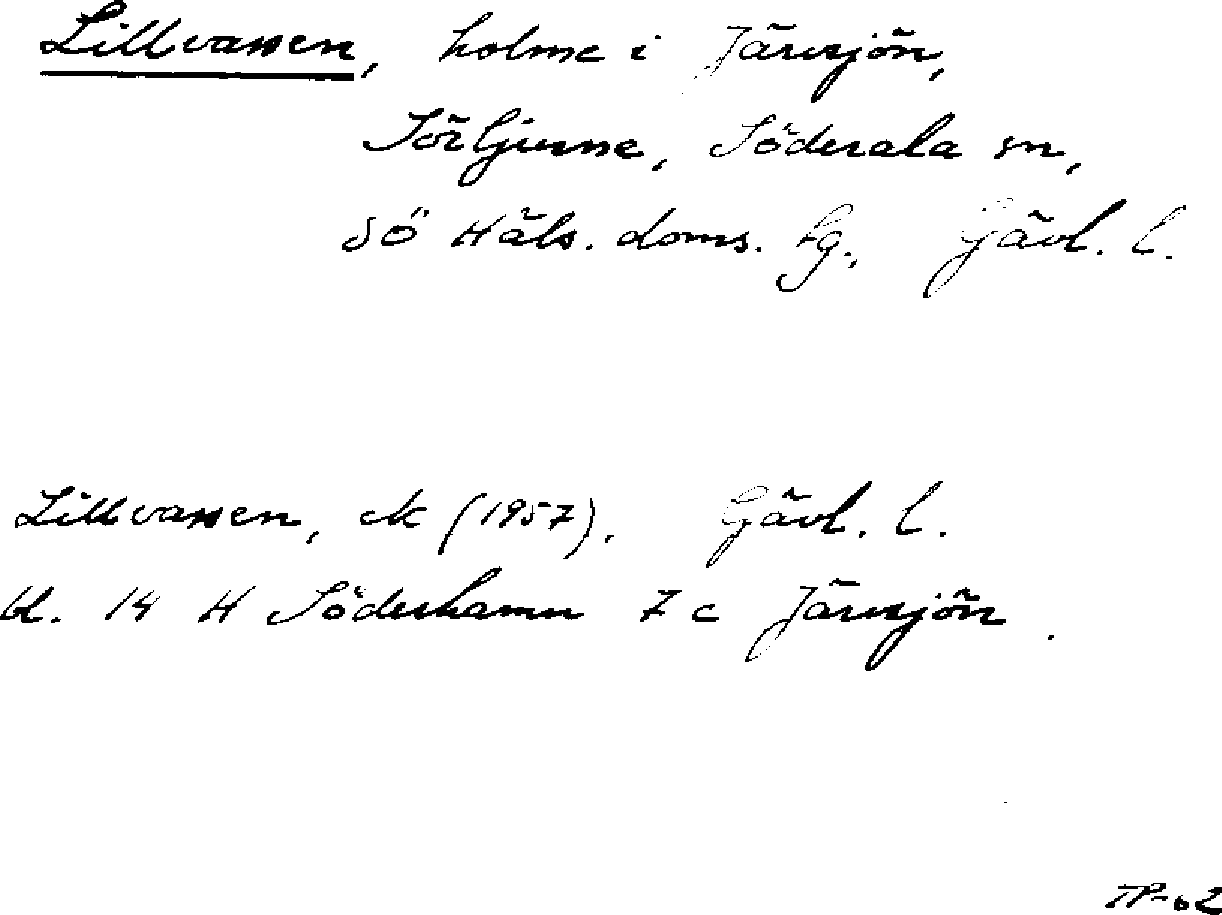 Lillvassen, holme i Järvsjön,
Sörljusne, Söderala sn,
Sö Häls. doms. lg., Gävl. l.
Lillvassen, ek (1957). Gävl. l.
bl. 14 H Söderhamn 7 c Järvsjön.
TP-62